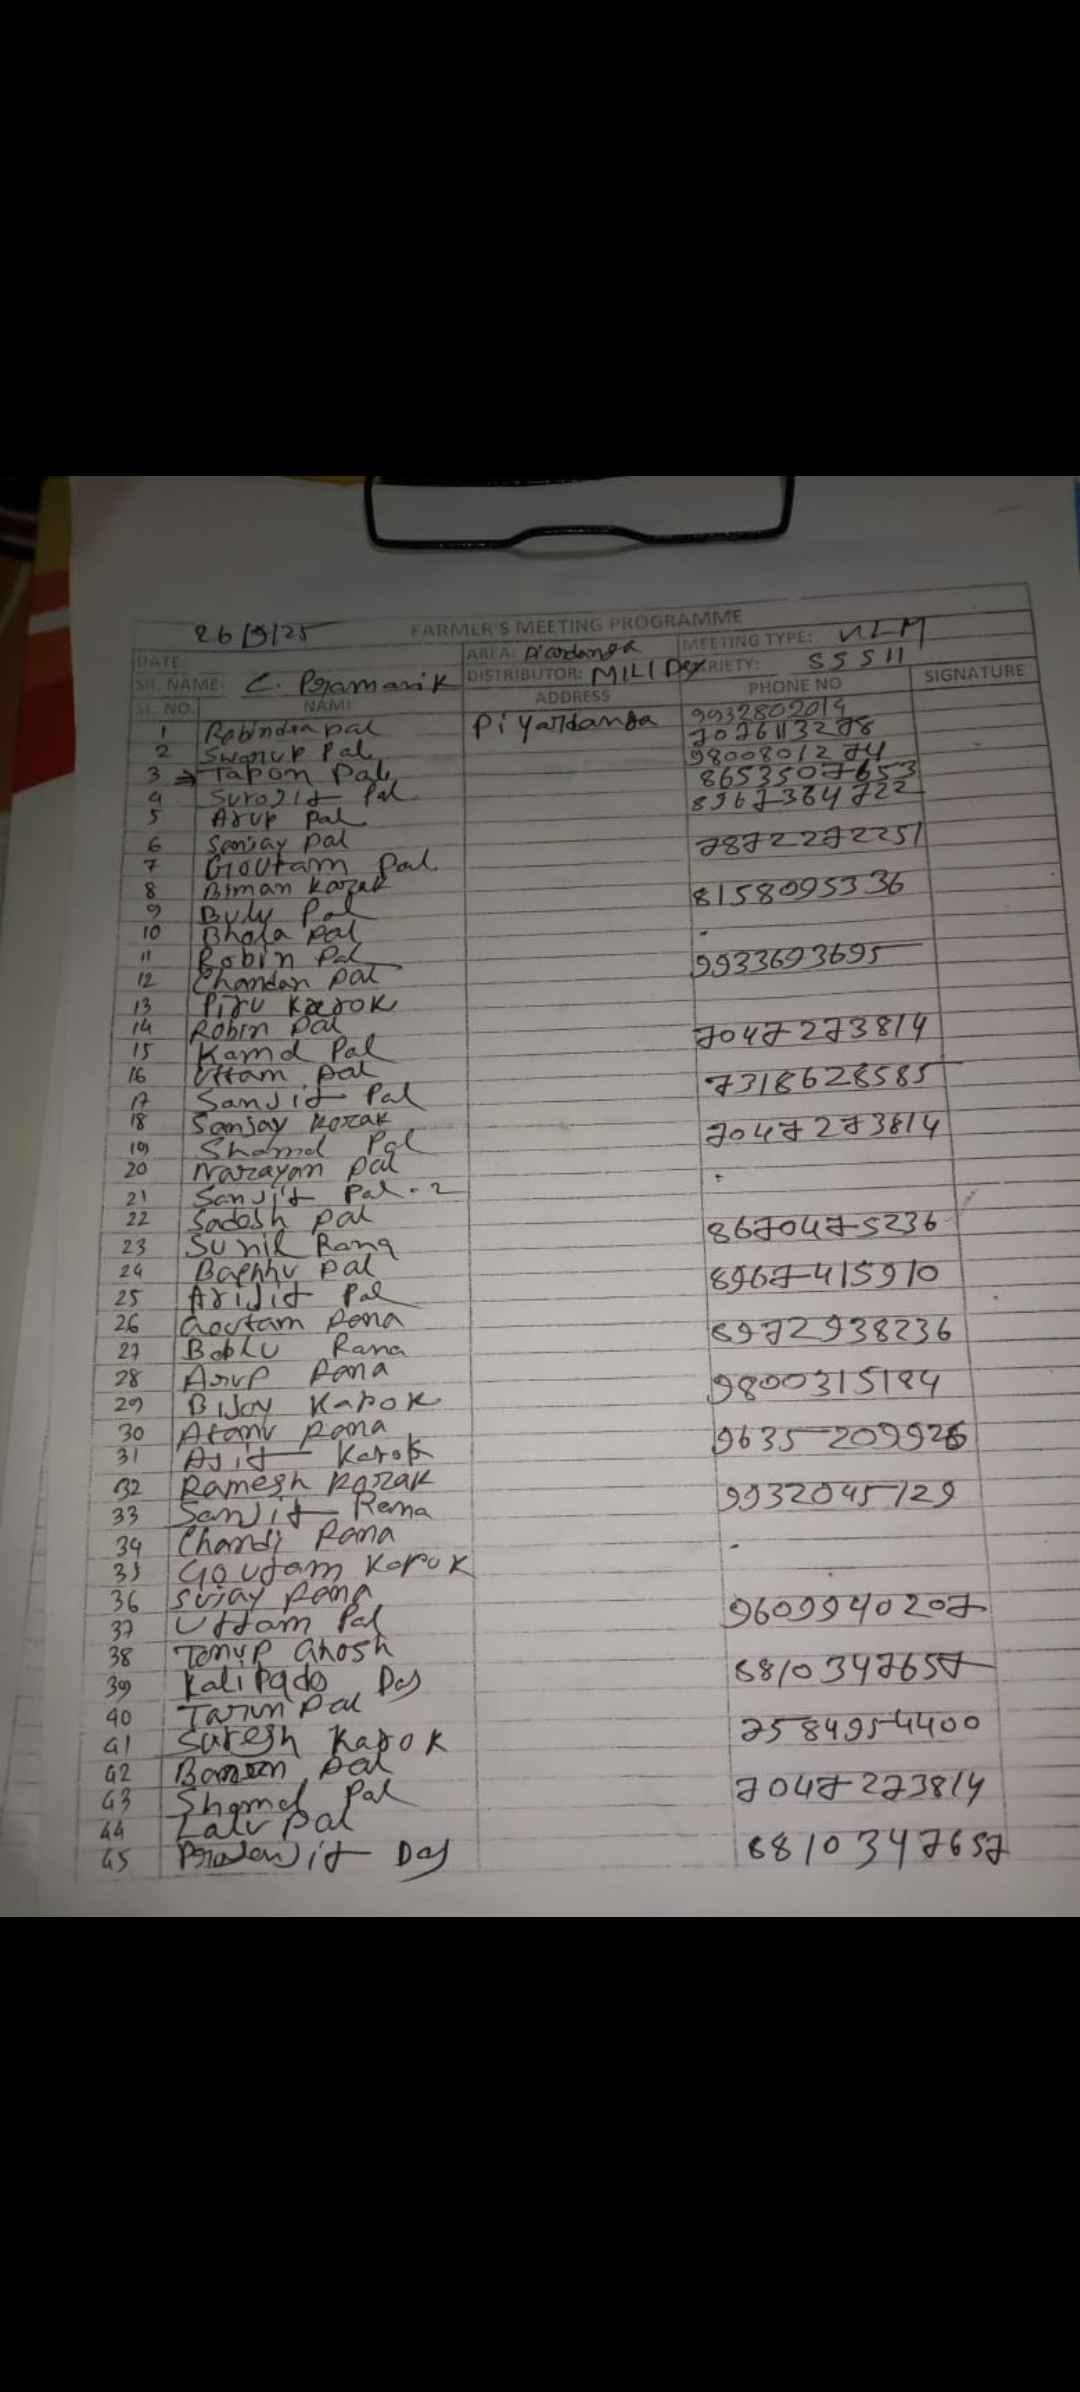 FARMER'S MEETING PROGRAMME
DATE: 26/9/25 AREA: Piardanga MEETING TYPE: VLM
SR. NAME: C. Pramanik DISTRIBUTOR: MILI Dey VARIETY: SSS11
SL. NO. NAME ADDRESS PHONE NO SIGNATURE
1 Robindra pal Piyardanga 9932802014
2 Swarup Pal 7076113278
3 → Tapon Pal 9800801274
4 Surojit Pal 8653507653
5 Arup Pal 8967364722
6 Sanjay pal 7872272251
7 Goutam Pal
8 Biman Karak 8158095336
9 Bulu Pal
10 Bhola Pal
11 Robin Pal 9933693695
12 Chandan Pal
13 Piru Karok
14 Robin pal 7047273814
15 Kamol Pal
16 Uttam pal 7318628585
17 Sanjit Pal
18 Sanjay Korak 7047273814
19 Shamol Pal
20 Narayan pal
21 Sanjit Pal-2
22 Sadosh pal 8670475236
23 Sunil Rana
24 Baphhu pal 8967415910
25 Arijit Pal
26 Goutam Rana 8972938236
27 Boblu Rana
28 Arup Rana 9800315184
29 Bijoy Karok
30 Atanu Rana 9635209926
31 Ajit Karok
32 Ramesh Korak 9932045129
33 Sanjit Rana
34 Chandi Rana
35 Goutam Korok
36 Sujay Rana 9609940207
37 Uttam Pal
38 Tonup Ghosh 8810347657
39 Kali Pado Das
40 Tarun Pal 7584954400
41 Suresh Karok
42 pal 7047273814
43 Shamol Pal
44 Lalu pal
45 Prosenjit Das 8810347657